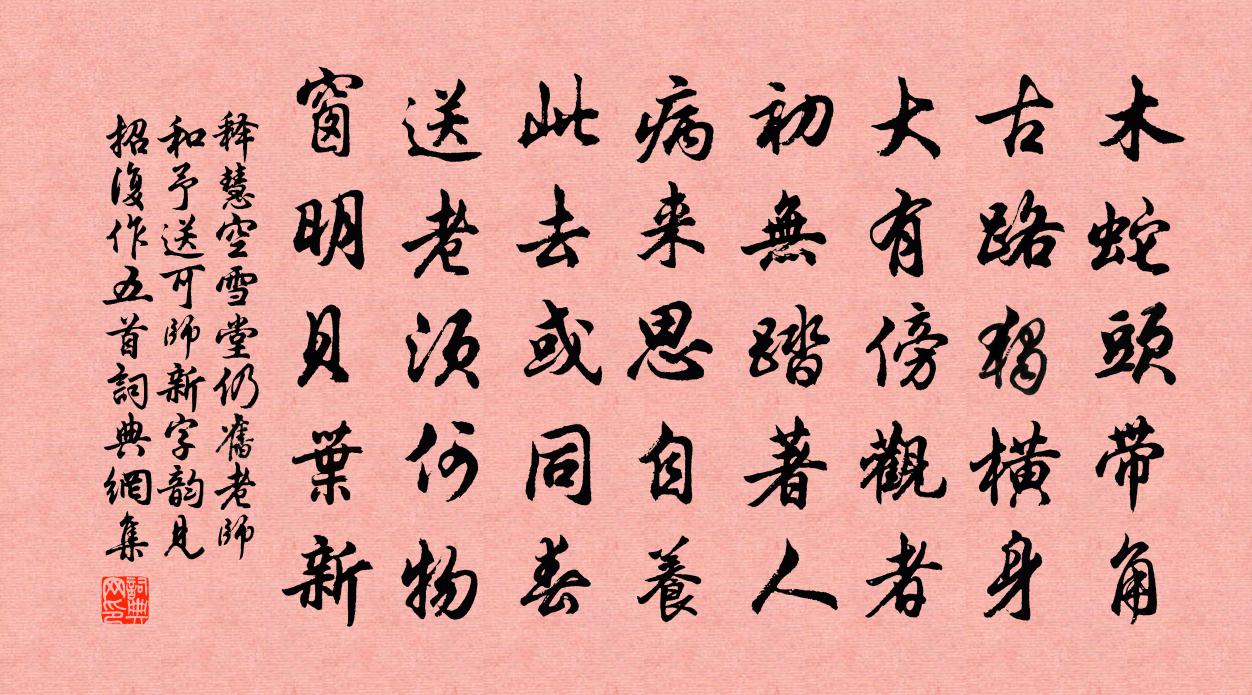 木蛇頭带角
古路獨橫身
大有傍觀者
初無踏著人
病来思自養
此去或同春
送老須何物
窗明見葉新
释慧空雪堂仍舊老師
和予送可師新字韵見
招復作五首詞典網集
詞典网印